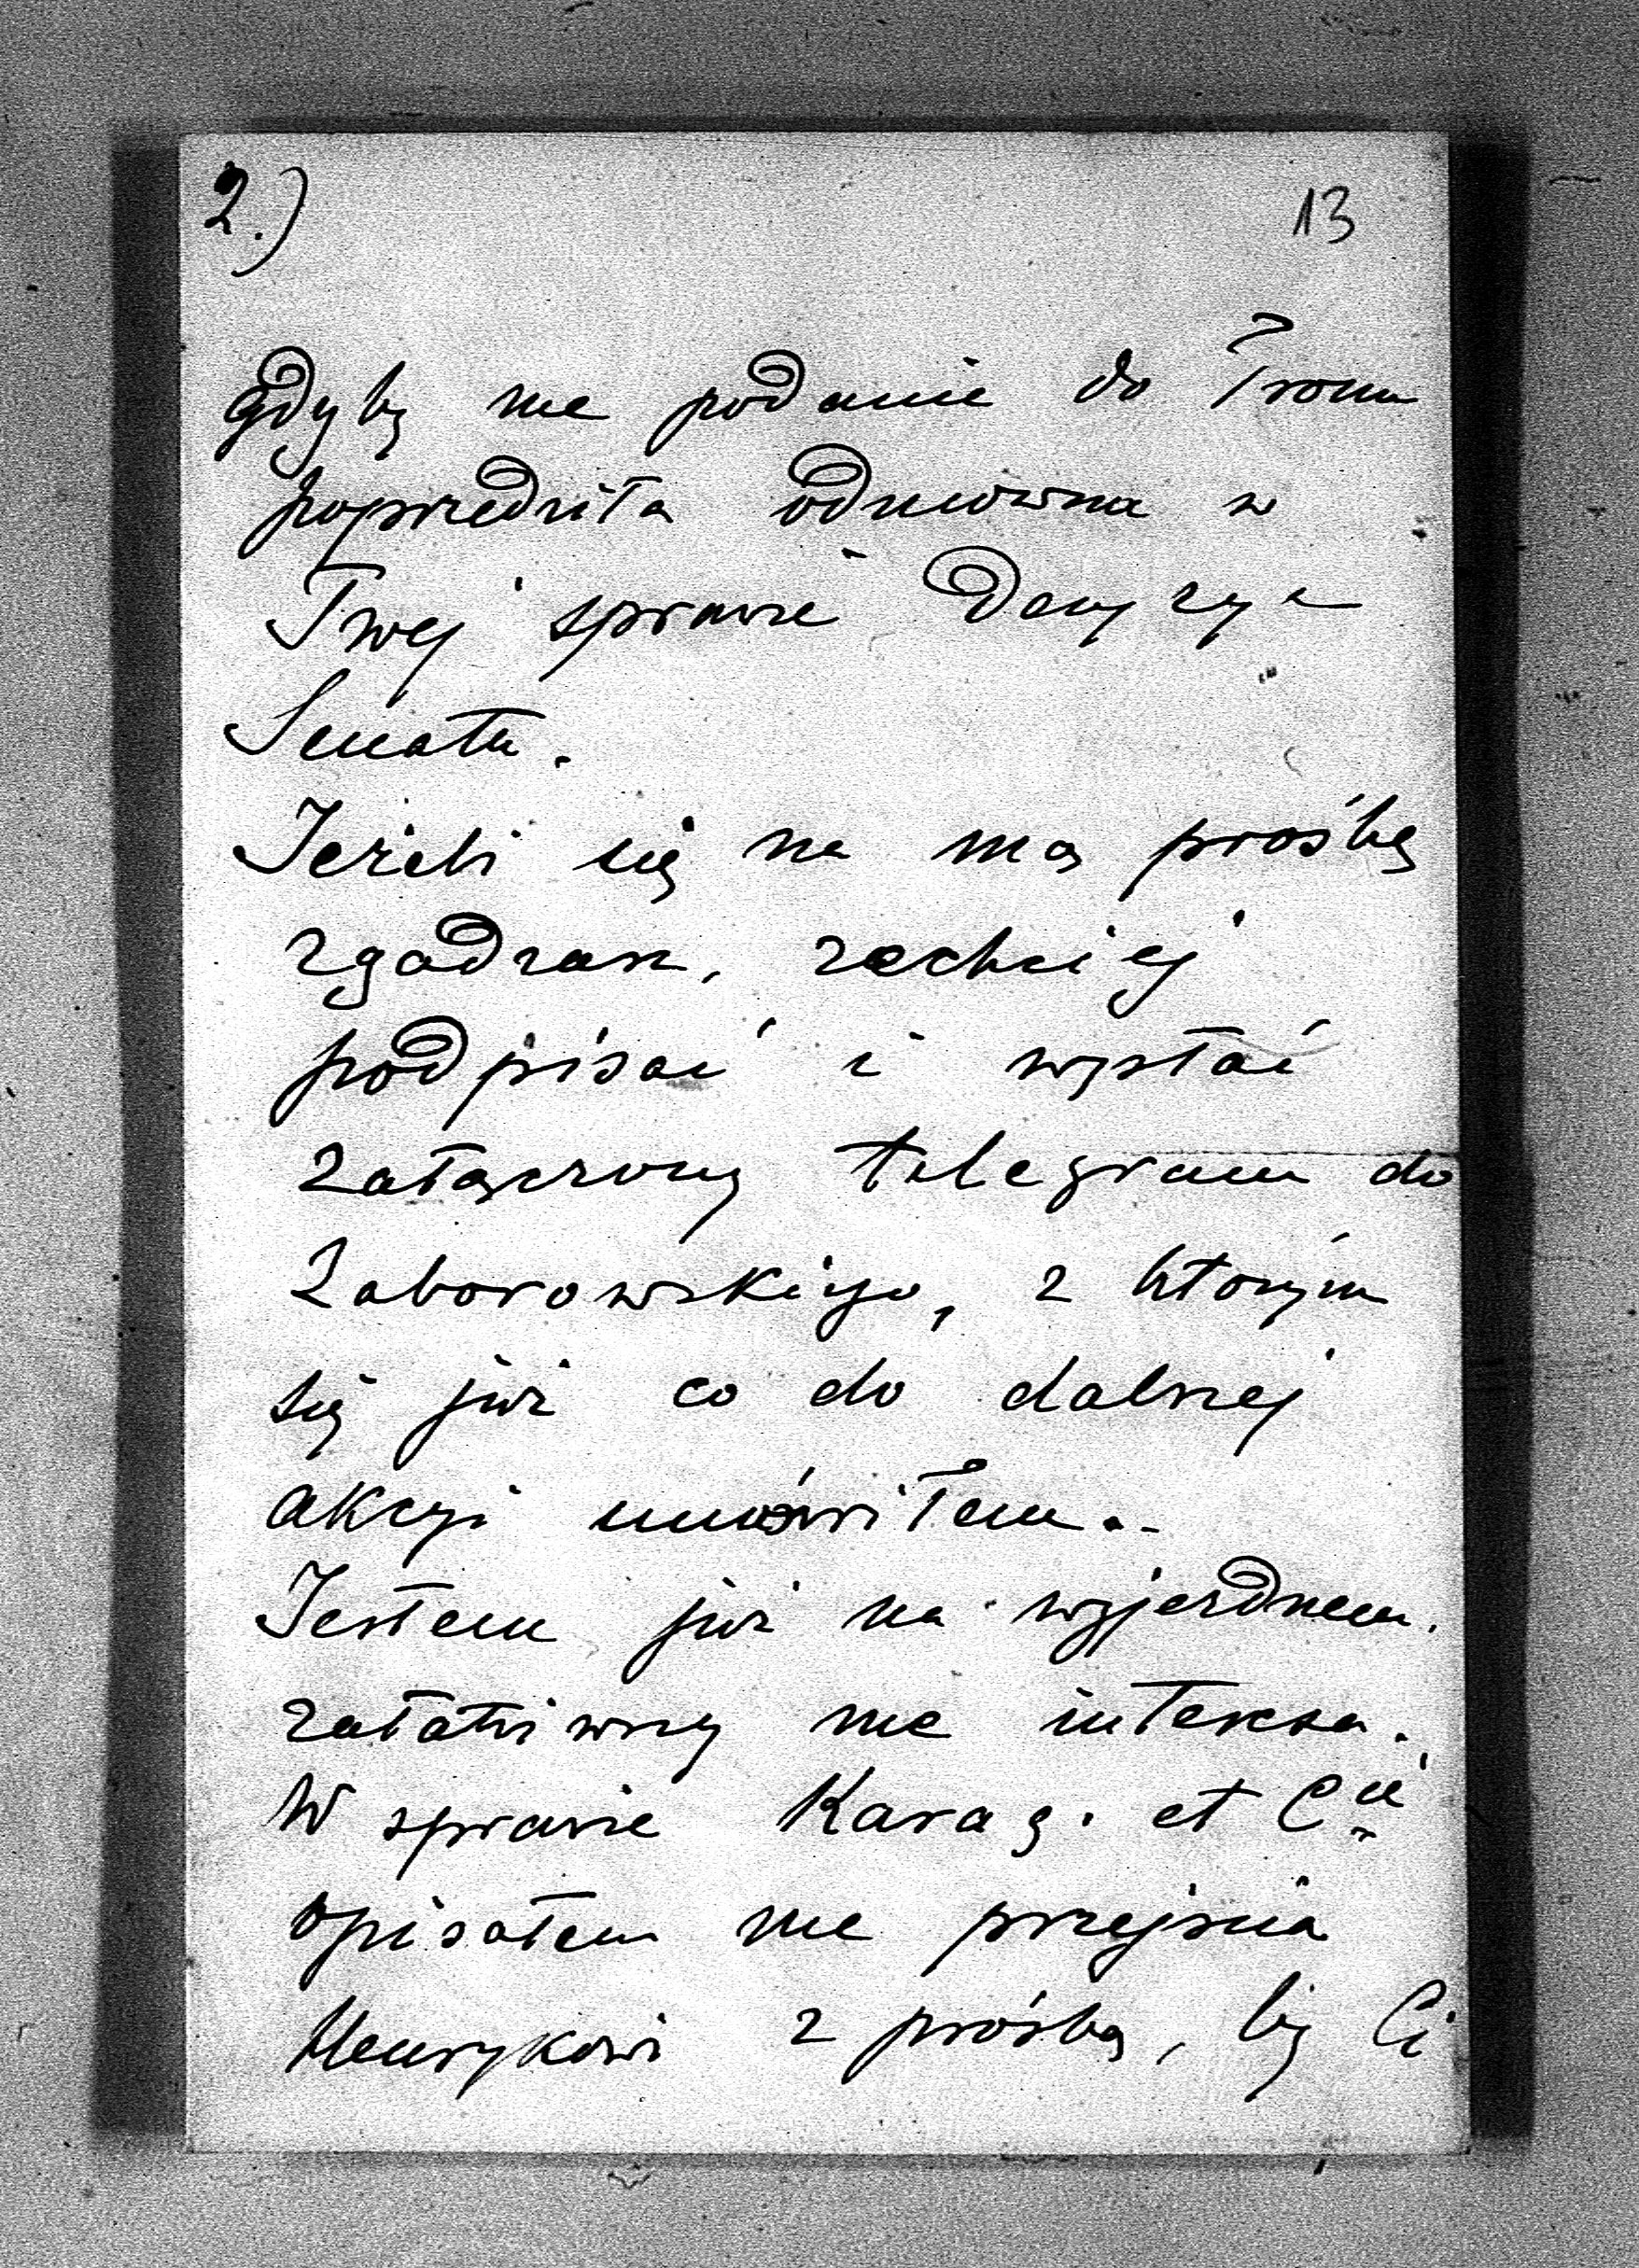 2.) 13
gdyby me podanie do Tronu
poprzedziła odmowna w
Twej sprawie decyzya
Senatu.
Jeżeli się na mą prośbę
zgadzasz, zechciej
podpisać i wysłać
załączony telegram do
Zaborowskiego, z którym
się już co do dalszej
akcyi umówiłem.-
Jestem już na wyjezdnem.
załatwiwszy me interesa.
W sprawie Karag. et Cie
opisałem me przejścia
Henrykowi z prośbą, by Ci